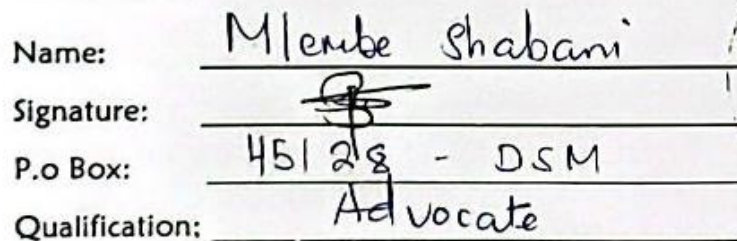 Name: Mlembe Shabani
Signature:
P.o Box: 45128 - DSM
Qualification: Advocate